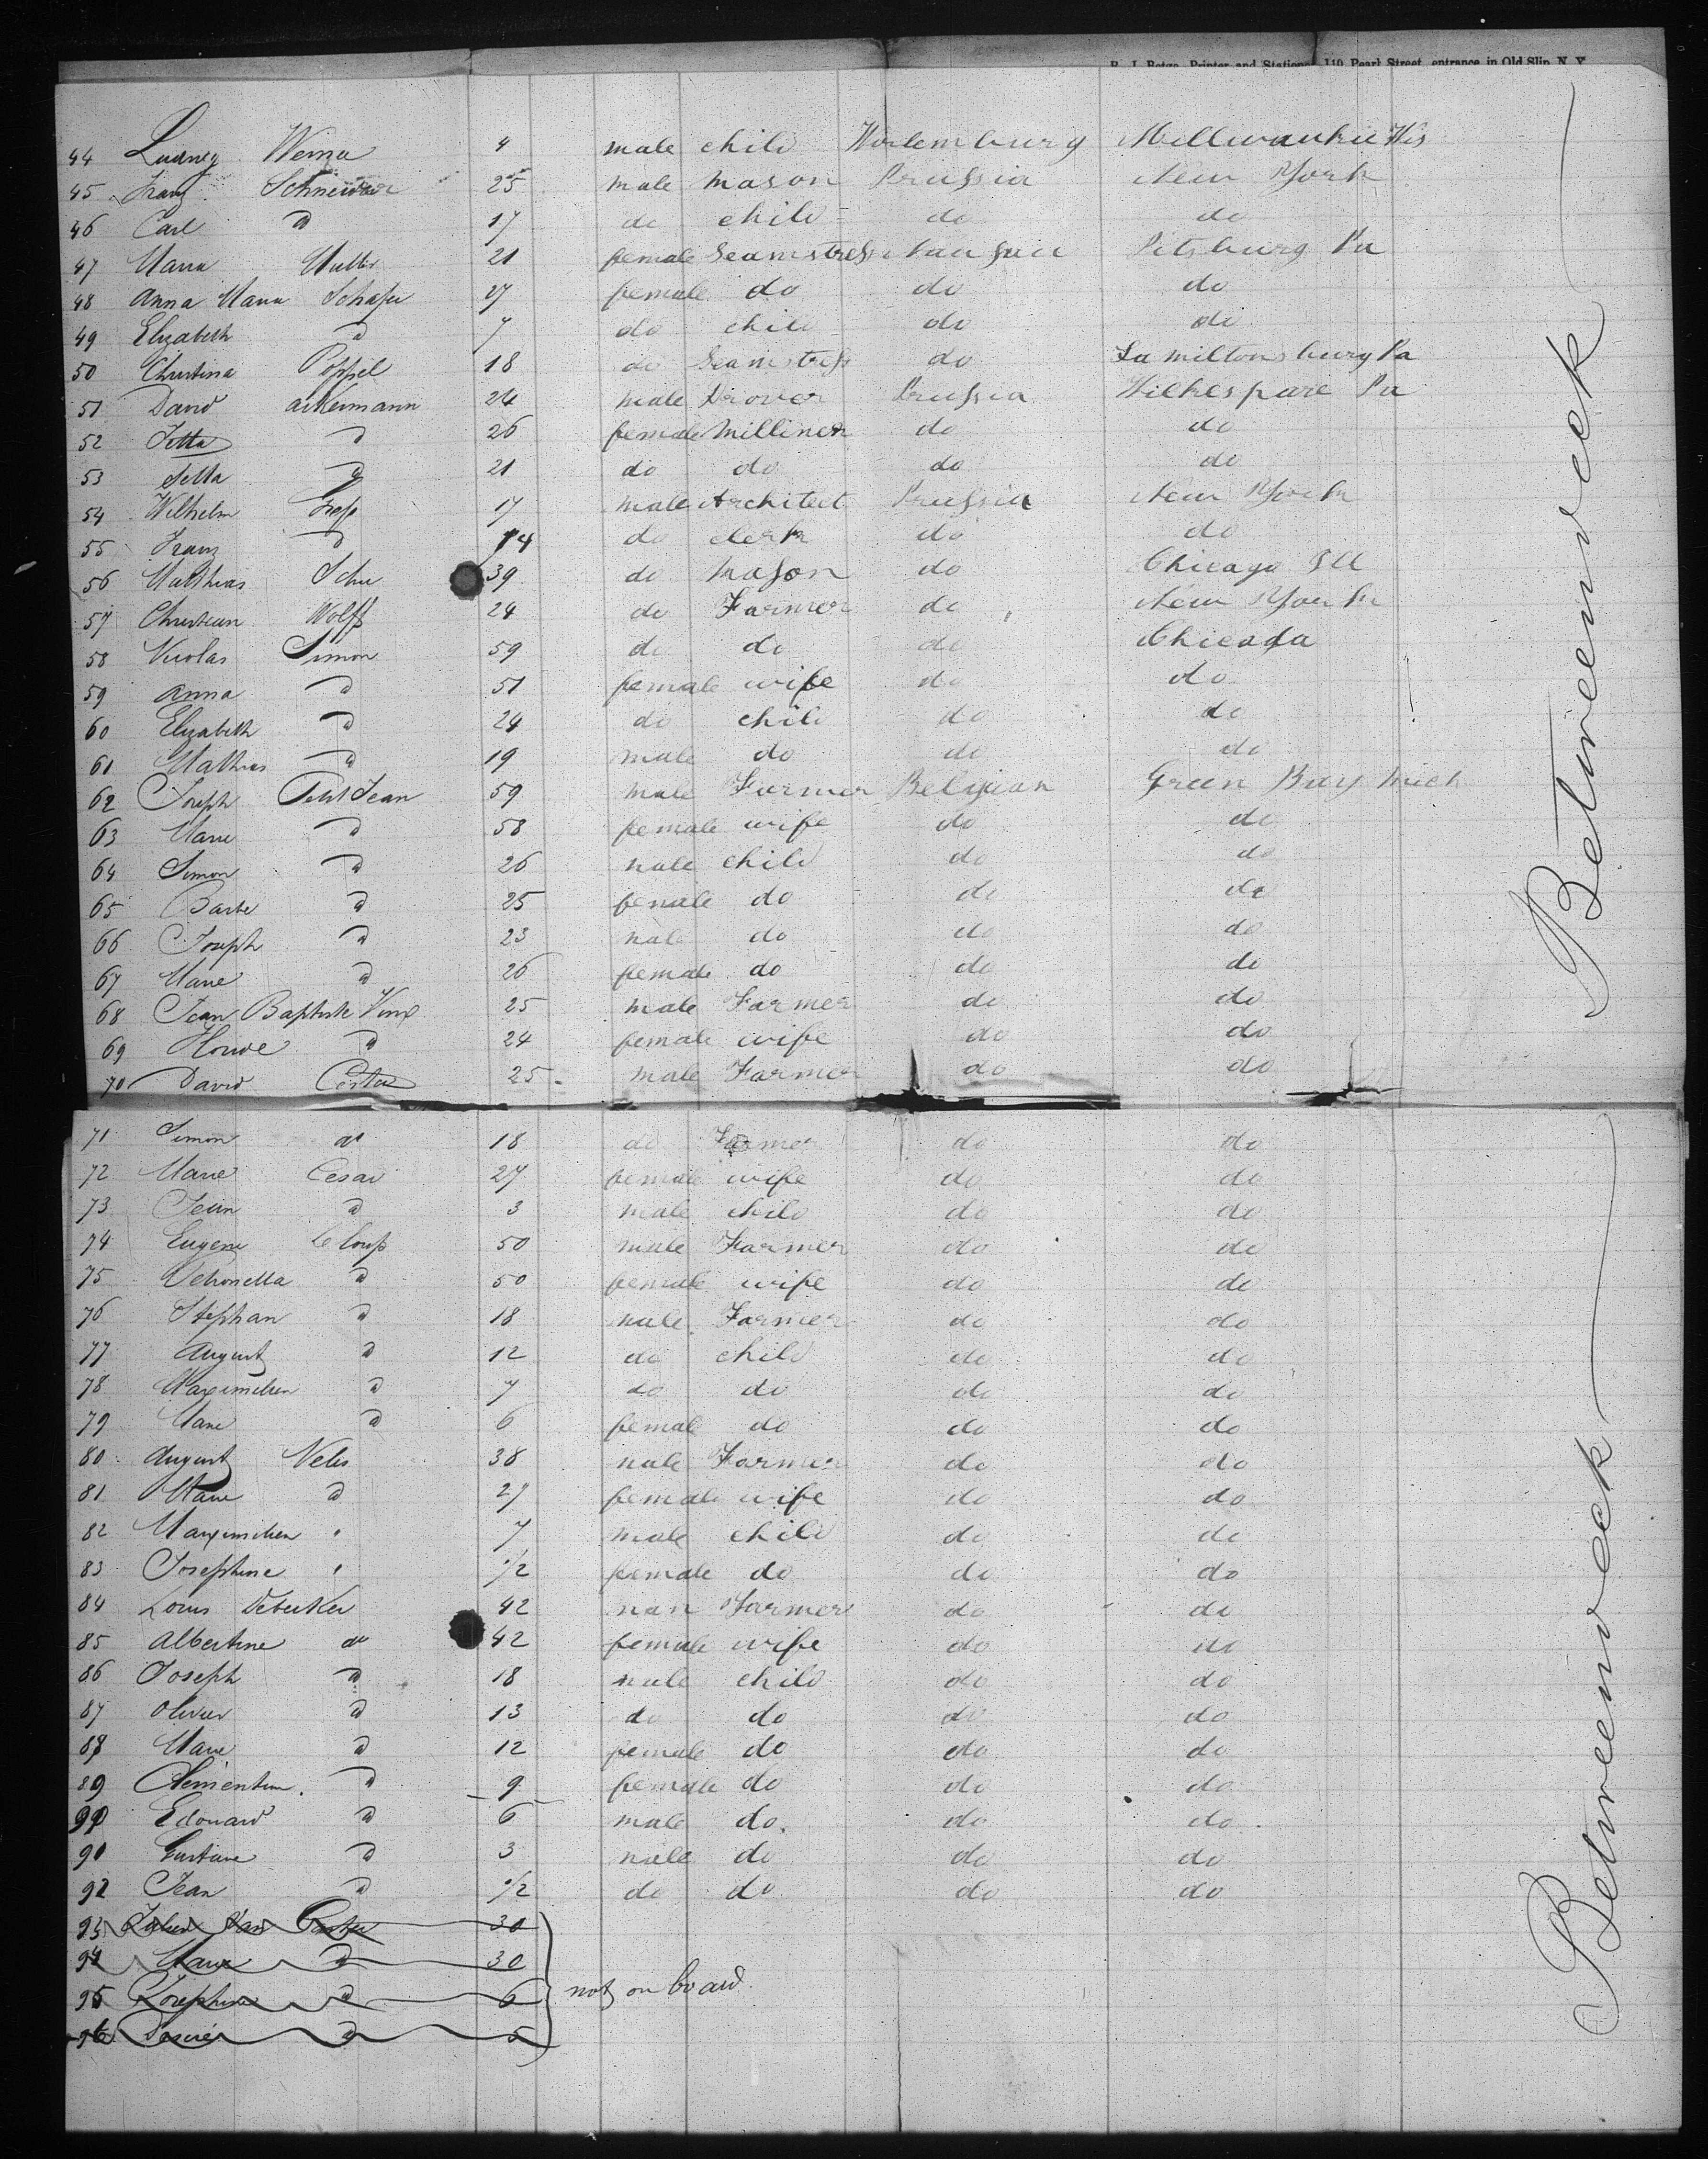 B. J. Botge, Printer and Stationer, 110 Pearl Street, entrance in Old Slip, N. Y.
44 Ludwig Werner 4 male child Wortemburg Mellwaukie Wis
45 Franz Schneider 25 male mason Prussia New York
46 Carl do 17 do child do do
47 Maria Muller 21 female Seamstress Nausau Pitsburg Pa
48 Anna Maria Schafer 27 female do do do
49 Elizabeth do 7 do child do do
50 Christina Poppel 18 do Seamstress do Lamiltonsburg Pa
51 David Ackermann 24 male Drover Prussia Wilkespare Pa
52 Jetta do 26 female Milliner do do
53 Setta do 21 do do do do
54 Wilhelm 17 male Architect Prussia New York
55 Franz do 14 do clerk do do
56 Matthias Schu 39 do Mason do Chicago Ill
57 Christian Wolff 24 do Farmer do New York
58 Nicolas Simon 59 do do do Chicada
59 Anna do 51 female wife do do
60 Elizabeth do 24 do child do do
61 Mathias do 19 male do do do
62 Joseph Petit Jean 59 male Farmer Belgian Green Bay Mich
63 Marie do 58 female wife do do
64 Simon do 26 male child do do
65 Barbe do 25 female do do do
66 Joseph do 23 male do do do
67 Marie do 26 female do do do
68 Jean Baptiste 25 male Farmer do do
69 do 24 female wife do do
70 David 25 male Farmer do do
71 Simon do 18 do Farmer do do
72 Marie Cesar 27 female wife do do
73 Jean do 3 male child do do
74 Eugene Le Loup 50 male Farmer do do
75 Petronella do 50 female wife do do
76 Stephan do 18 male Farmer do do
77 August do 12 do child do do
78 Maximilien do 7 do do do do
79 Marie do 6 female do do do
80 August Nelis 38 male Farmer do do
81 Marie do 27 female wife do do
82 Maximilien " 7 male child do do
83 Josephine " 1/2 female do do do
84 Louis Debecker 42 man Farmer do do
85 Albertine do 42 female wife do do
86 Joseph do 18 male child do do
87 Olivier do 13 do do do do
88 Marie do 12 female do do do
89 Clementine do 9 female do do do
90 Edouard do 6 male do do do
90 Gustave do 3 male do do do
92 Jean do 1/2 do do do do
93 Julien Van 30
94 Marie do 30
95 Josephine do 6 not on board
96 Desiré do 5
Betweenweck
Betweenweck